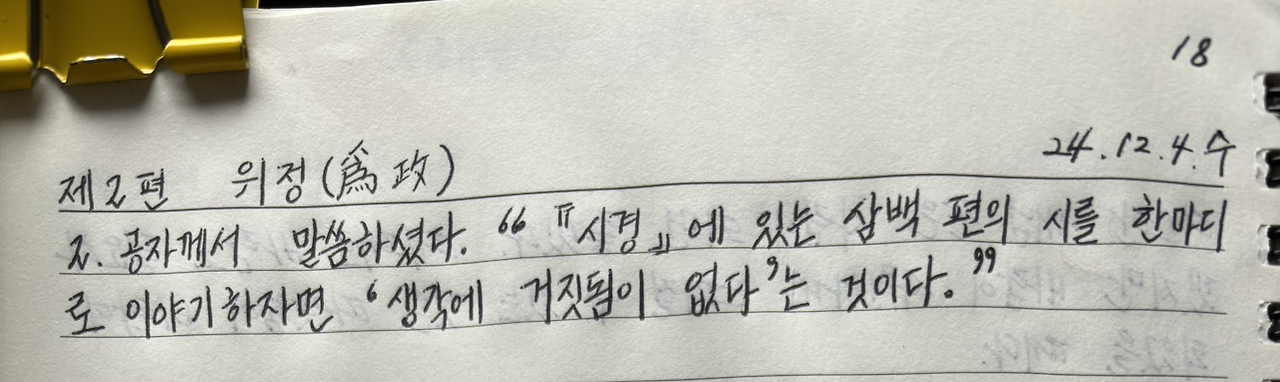 18
24.12.4.수
제2편 위정(爲政)
2. 공자께서 말씀하셨다. “『시경』에 있는 삼백 편의 시를 한마디
로 이야기하자면 ‘생각에 거짓됨이 없다’는 것이다.”